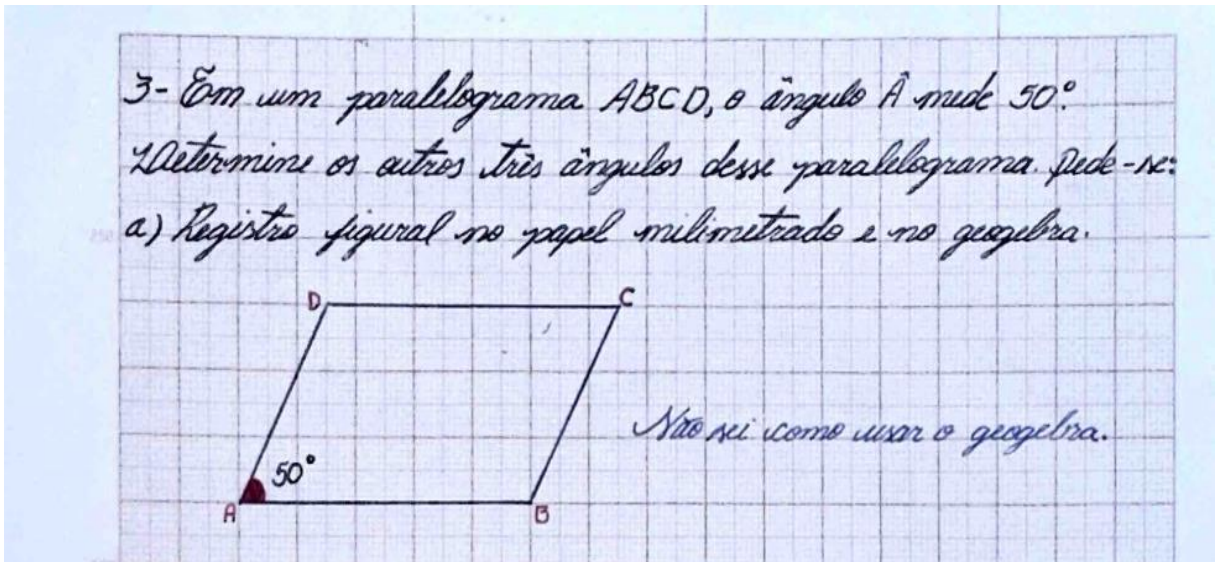 3- Em um paralelograma ABCD, o ângulo Â mede 50°.
Determine os outros três ângulos desse paralelograma. Pede-se:
a) Registro figural no papel milimetrado e no geogebra.
D C
Não sei como usar o geogebra.
50°
A B